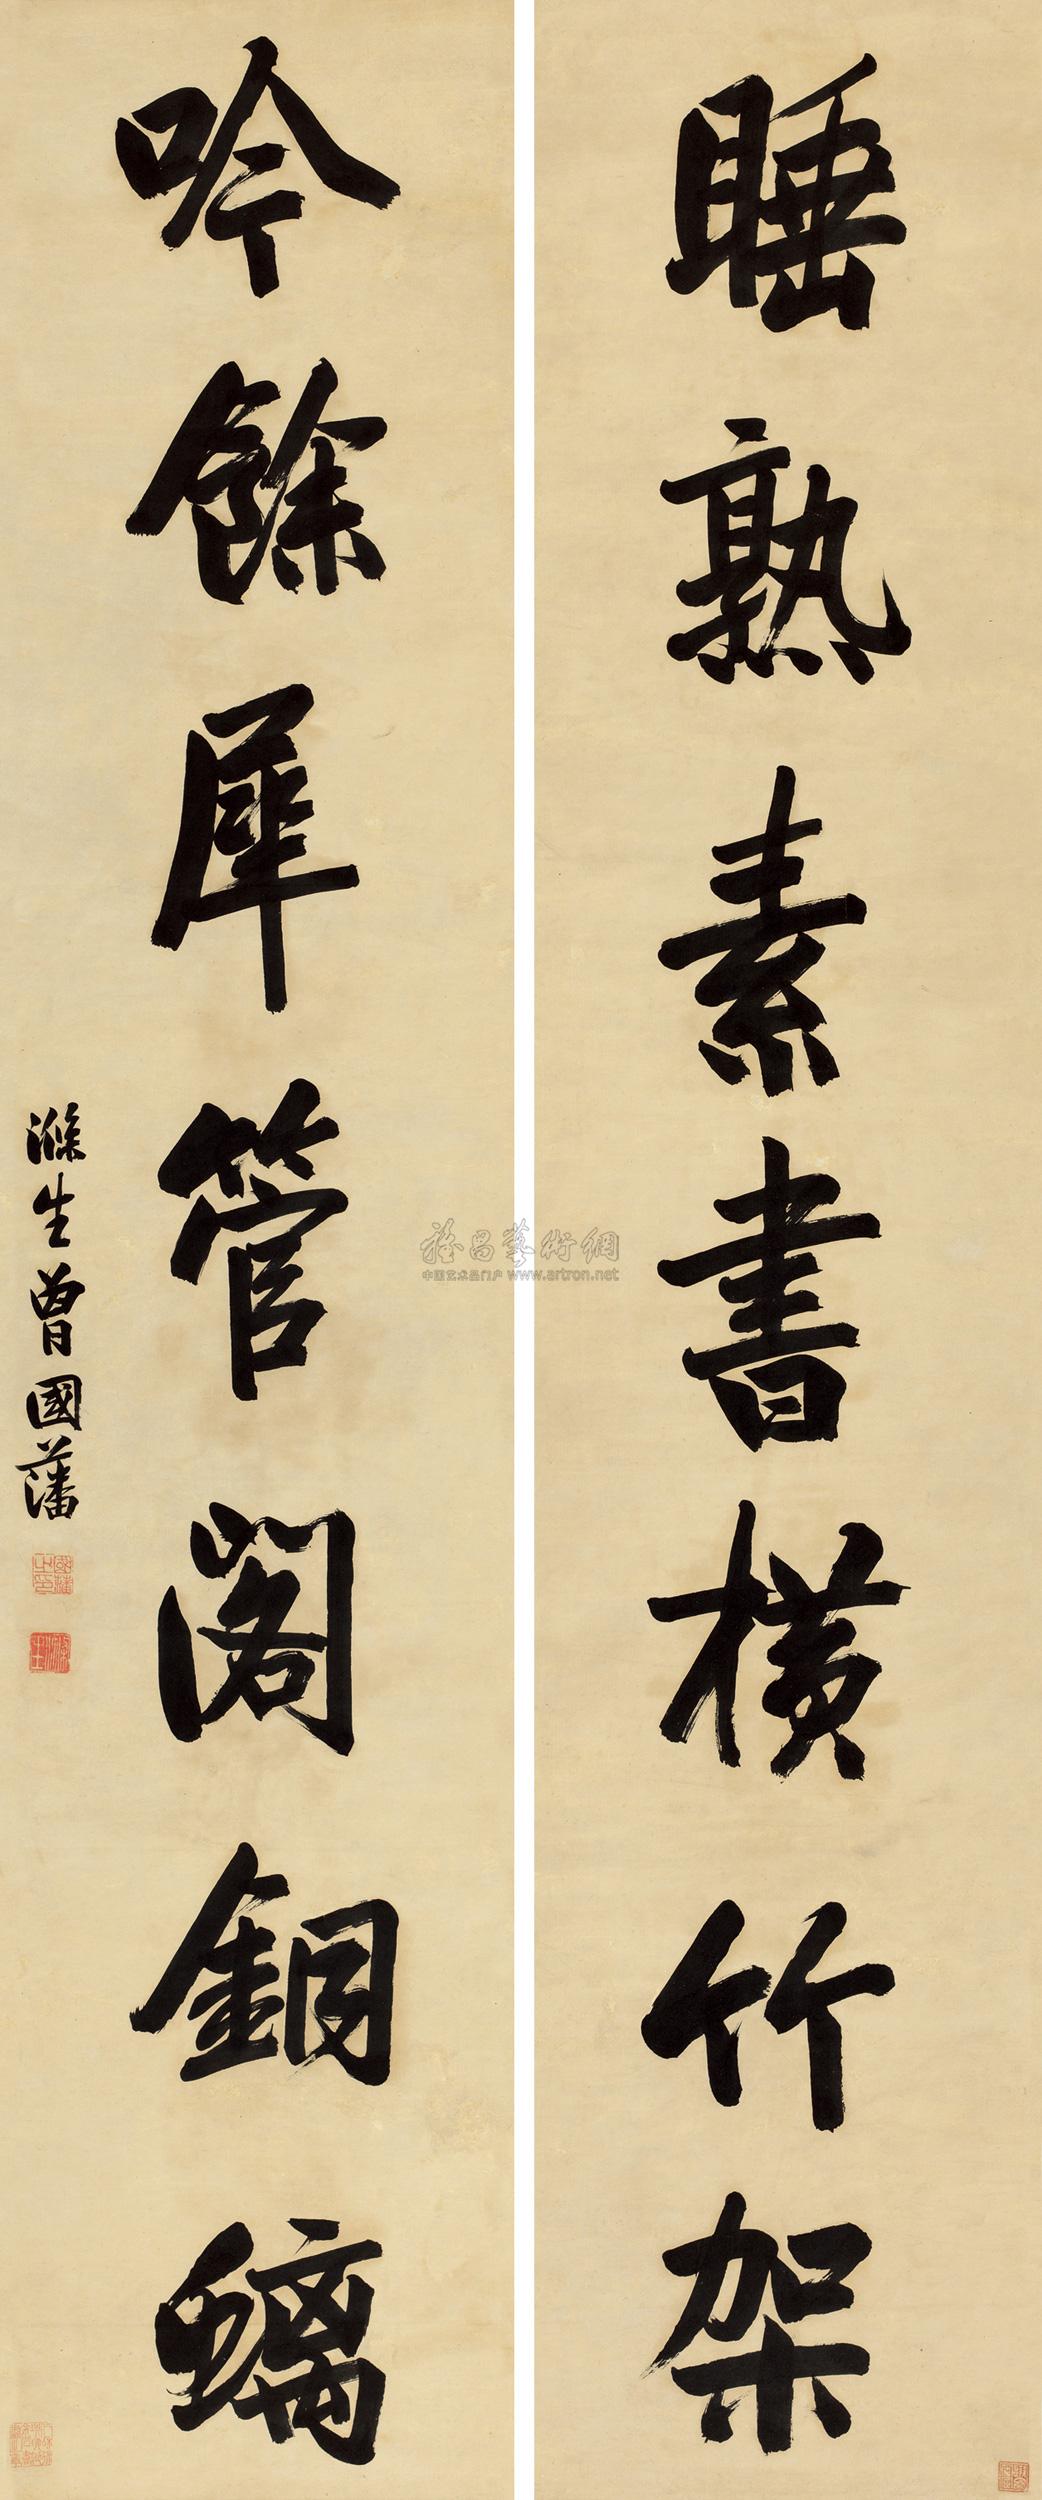 睡熟素書橫竹架
吟餘犀管閣銅螭
滌生曾國藩
國藩之印
滌生
雅昌藝術網
中国艺术品门户 www.artron.net